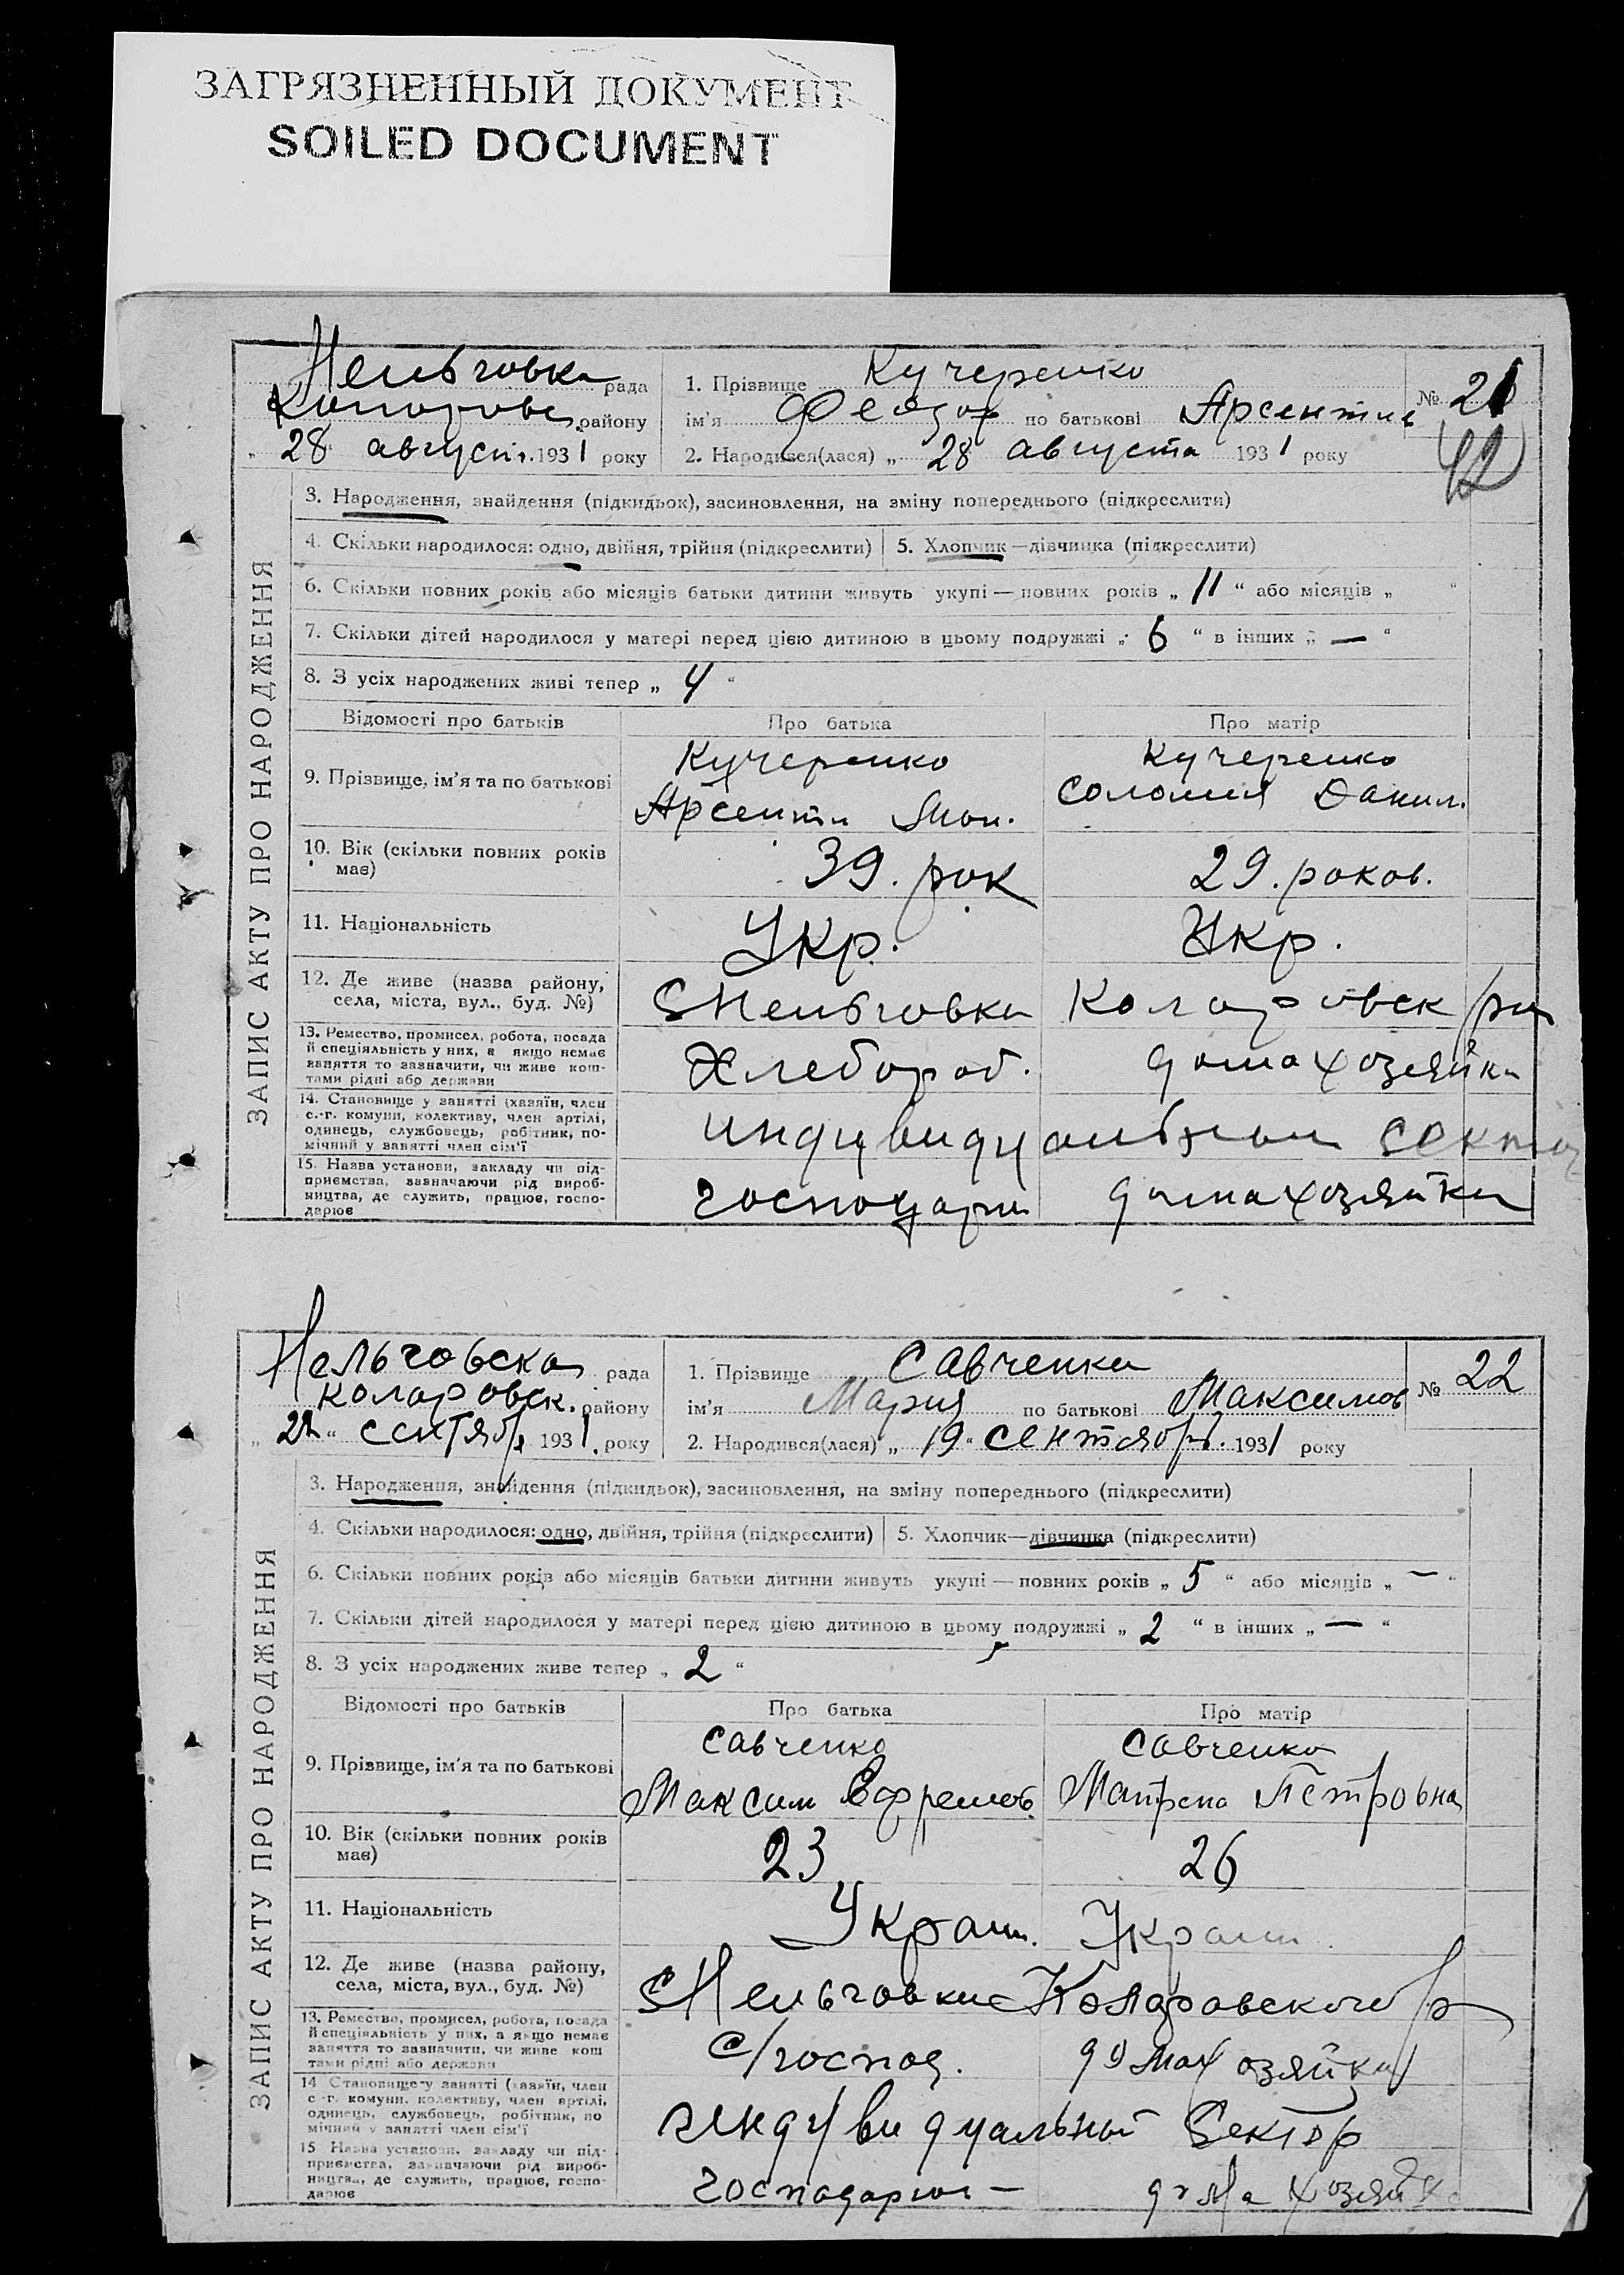 ЗАГРЯЗНЕННЫЙ ДОКУМЕНТ
SOILED DOCUMENT
ЗАПИС АКТУ ПРО НАРОДЖЕННЯ
Нельговка рада
району
„ 28 август. 1931 року
1. Прізвище Кучеренко
ім'я Феодор по батькові
2. Народився(лася) „ 28 августа 1931 року
№ 21
42
3. Народження, знайдення (підкидьок), засиновлення, на зміну попереднього (підкреслити)
4. Скільки народилося: одно, двійня, трійня (підкреслити) 5. Хлопчик—дівчинка (підкреслити)
6. Скільки повних років або місяців батьки дитини живуть укупі — повних років „ 11 “ або місяців „ “
7. Скільки дітей народилося у матері перед цією дитиною в цьому подружжі „ 6 “ в інших „ — “
8. З усіх народжених живі тепер „ 4 “
Відомості про батьків Про батька Про матір
9. Прізвище, ім'я та по батькові
Кучеренко
Арсенти
Кучеренко
Соломия Данил.
10. Вік (скільки повних років має) 39. рок 29. роков.
11. Національність Укр. Укр.
12. Де живе (назва району, села, міста, вул., буд. №) С Нельговка Коларовск р
13. Ремество, промисел, робота, посада й спеціяльність у них, а якщо немає заняття то зазначити, чи живе коштами рідні або держави Хлебороб. домахозяйка
14. Становище у занятті (хазяїн, член с.-г. комуни, колективу, член артілі, одинець, службовець, робітник, помічний у занятті член сім'ї индувидуальном сектор
15. Назва установи, закладу чи підприємства, зазначаючи рід виробництва, де служить, працює, господарює господари домахозяйка
ЗАПИС АКТУ ПРО НАРОДЖЕННЯ
Нельговска рада
коларовск. району
„ “ сентября 1931. року
1. Прізвище Савченко
ім'я Мария по батькові Максимов
2. Народився(лася) „ 19 “ сентябр. 1931 року
№ 22
3. Народження, знайдення (підкидьок), засиновлення, на зміну попереднього (підкреслити)
4. Скільки народилося: одно, двійня, трійня (підкреслити) 5. Хлопчик—дівчинка (підкреслити)
6. Скільки повних років або місяців батьки дитини живуть укупі — повних років „ 5 “ або місяців „ — “
7. Скільки дітей народилося у матері перед цією дитиною в цьому подружжі „ 2 “ в інших „ — “
8. З усіх народжених живе тепер „ 2 “
Відомості про батьків Про батька Про матір
9. Прізвище, ім'я та по батькові
Савченко
Максим Ефремов.
Савченко
Матрена Петровна
10. Вік (скільки повних років має) 23 26
11. Національність Украин. Украин.
12. Де живе (назва району, села, міста, вул., буд. №) С Нельговки Коларовского р
13. Ремество, промисел, робота, посада й спеціяльність у них, а якщо немає заняття то зазначити, чи живе коштами рідні або держави С/господ. домахозяйка
14. Становище у занятті (хазяїн, член с.-г. комуни, колективу, член артілі, одинець, службовець, робітник, помічний у занятті член сім'ї индувидуальный Сектор
15. Назва установи, закладу чи підприємства, зазначаючи рід виробництва, де служить, працює, господарює — дома хозяйка